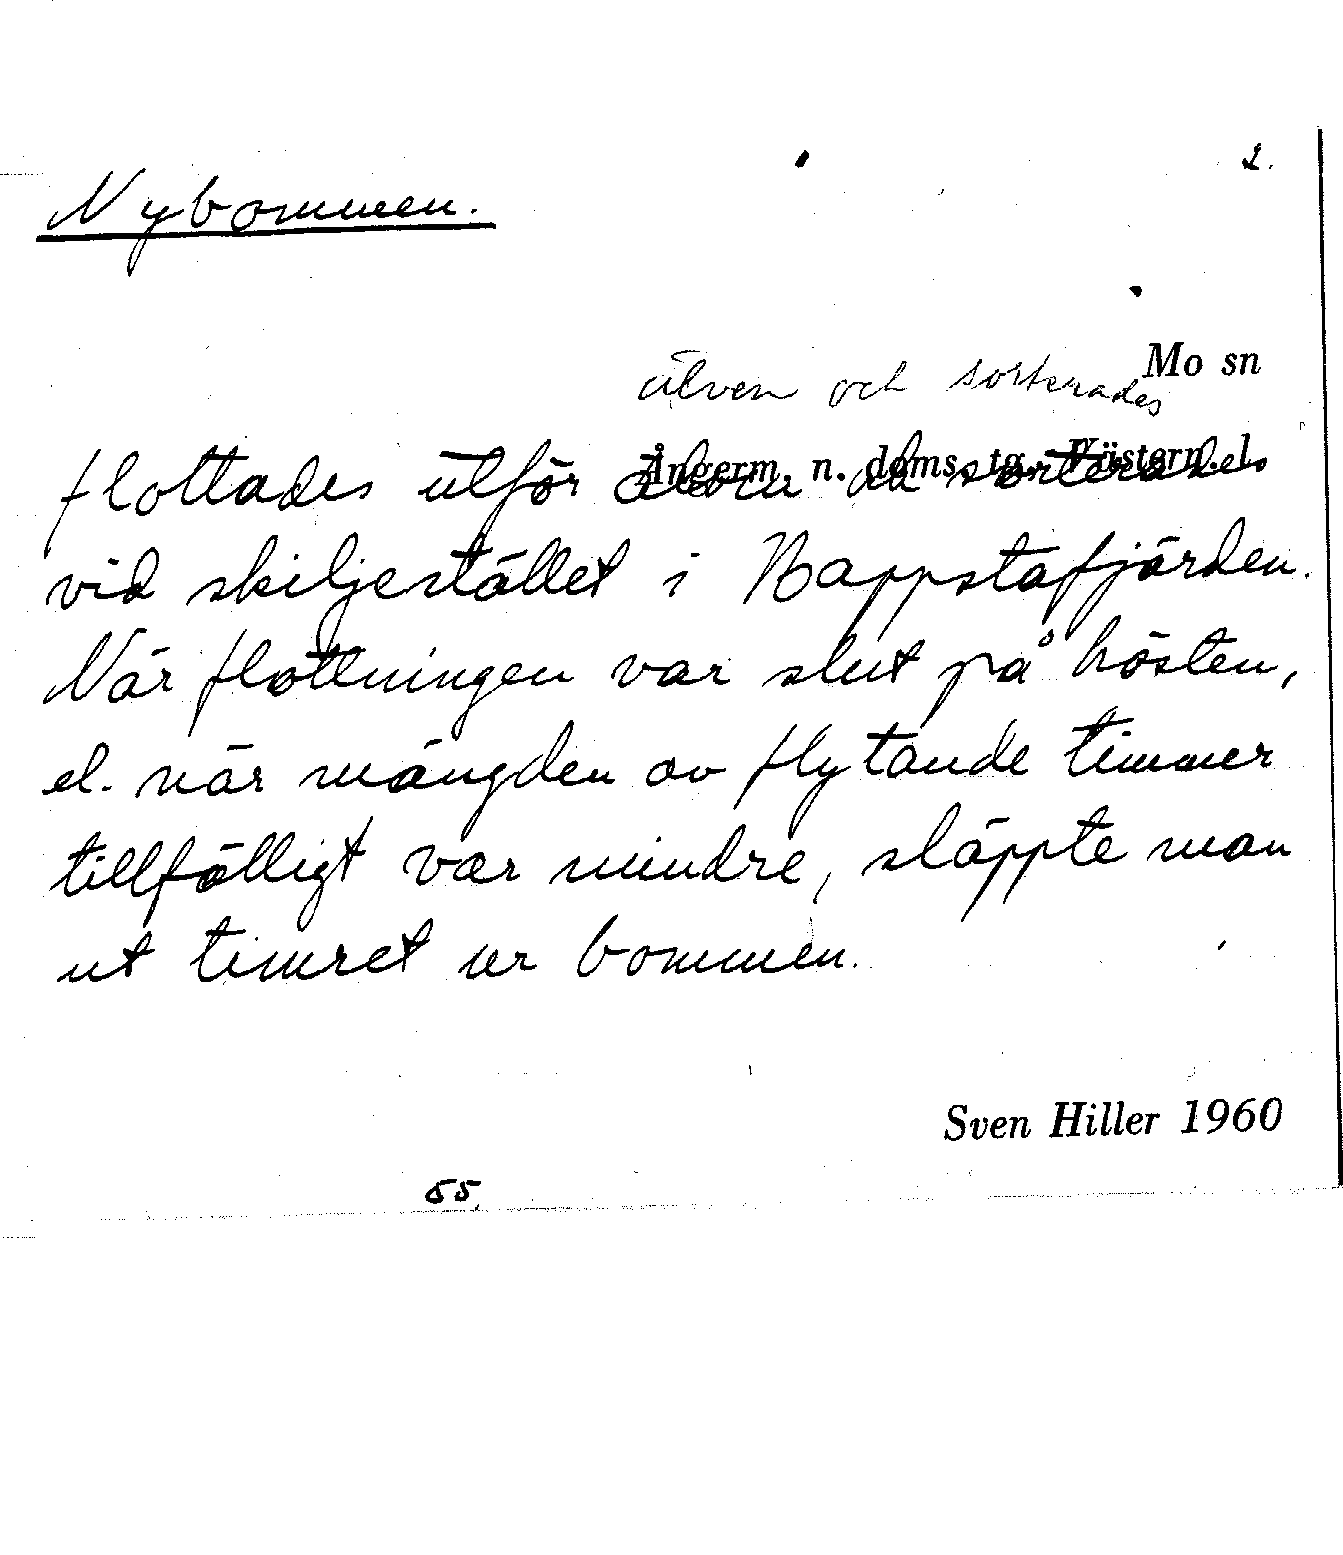 2.
Nybommen.
Mo sn
älven och sorterades
Ångerm. n. doms. tg. Västern. l.
flottades utför älven och sorterades
vid skiljestället i Happstafjärden.
När flottningen var slut på hösten,
el. när mängden av flytande timmer
tillfälligt var mindre, släppte man
ut timret ur bommen.
Sven Hiller 1960
55.